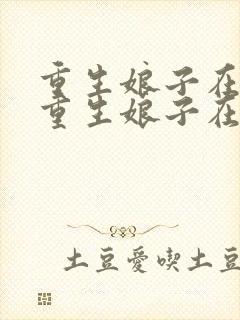 重生娘子在
重生娘子在
土豆愛喫土豆